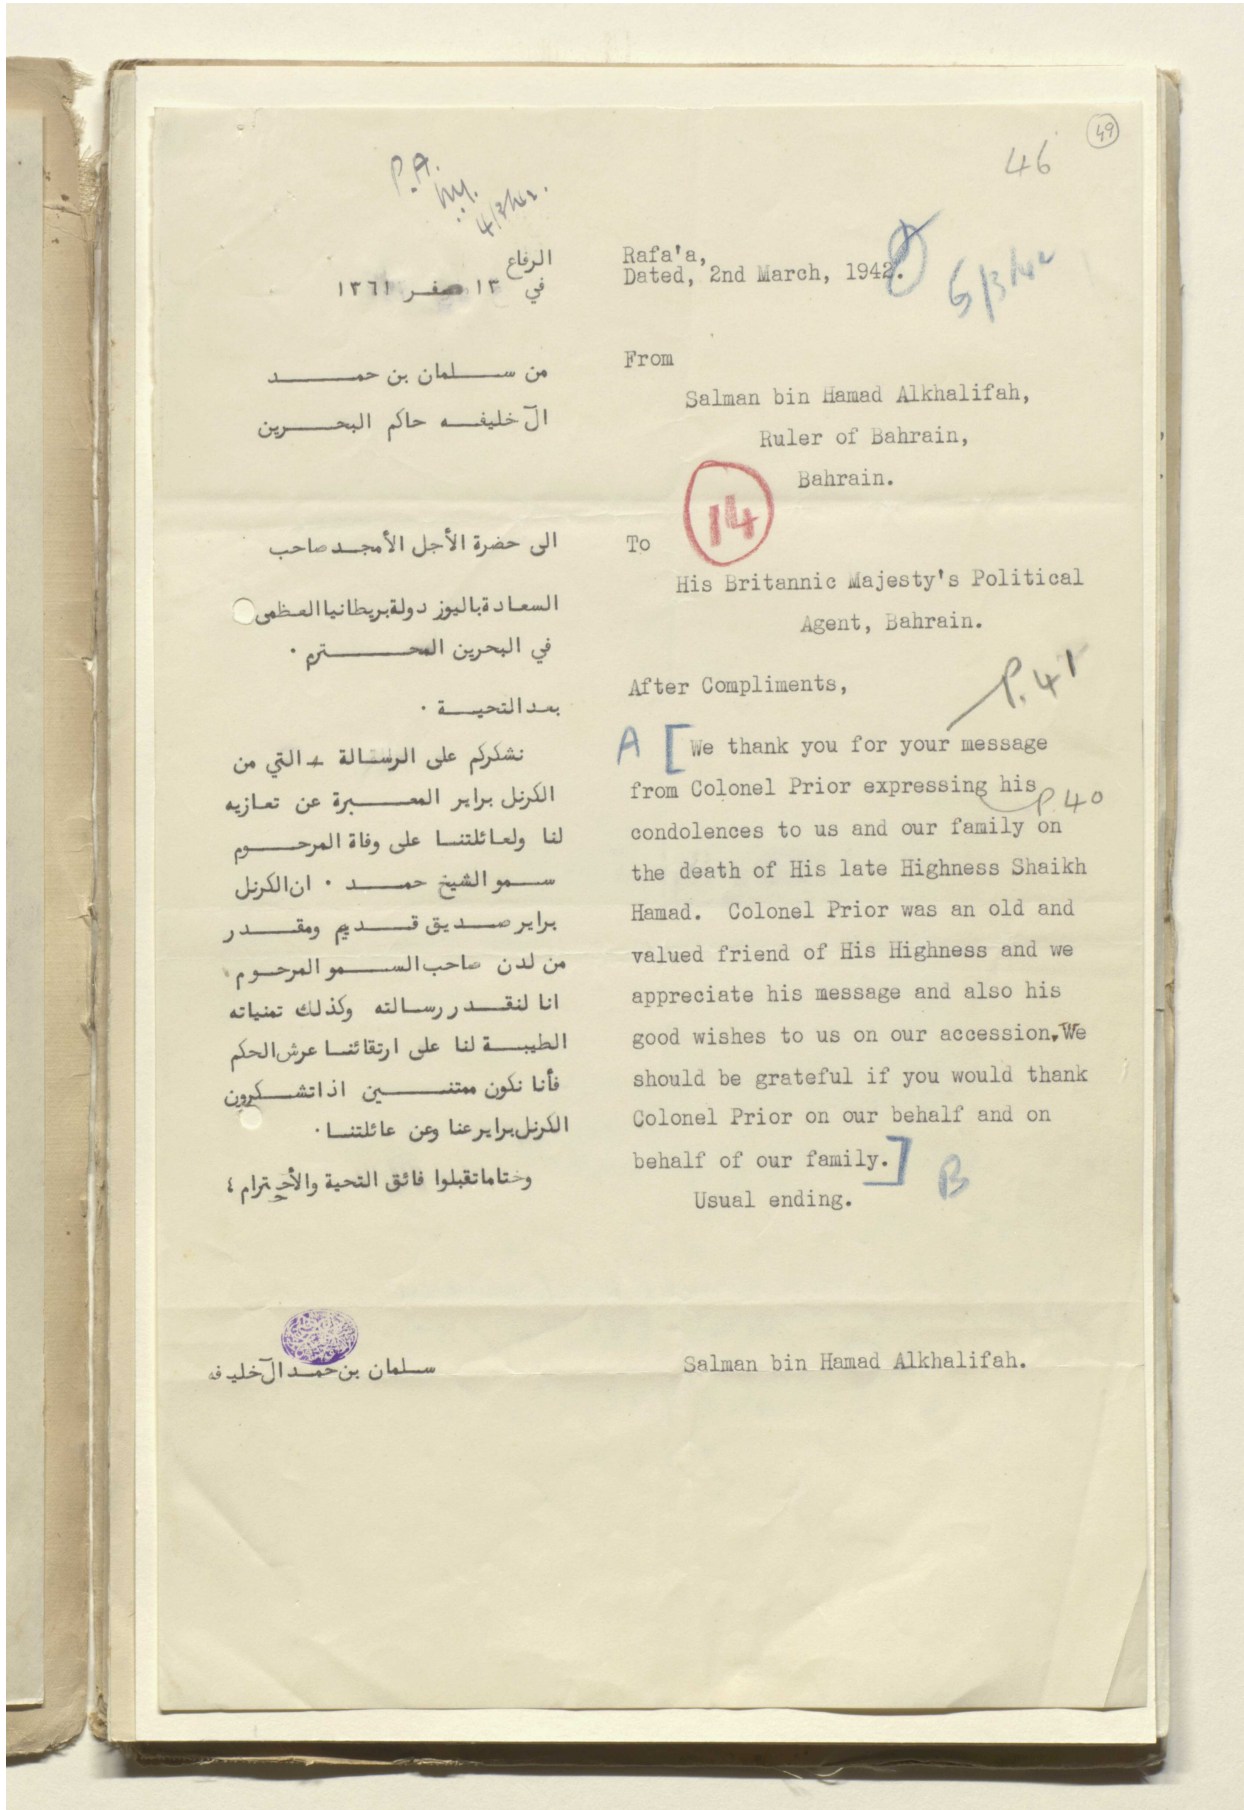 49
46
P.A.
4/3/42.
الرفاع
في ١٣ صفر ١٣٦١
من سلمان بن حمد
آل خليفه حاكم البحرين
الى حضرة الأجل الأمجد صاحب
السعادة باليوز دولة بريطانيا العظمى
في البحرين المحترم ٠
بعد التحية ٠
نشكركم على الرسالة التي من
الكرنل براير المعبرة عن تعازيه
لنا ولعائلتنا على وفاة المرحوم
سمو الشيخ حمد ٠ ان الكرنل
براير صديق قديم ومقدر
من لدن صاحب السمو المرحوم
انا لنقدر رسالته وكذلك تمنياته
الطيبة لنا على ارتقائنا عرش الحكم
فأنا نكون ممتنين اذا تشكرون
الكرنل براير عنا وعن عائلتنا ٠
وختاما تقبلوا فائق التحية والأحترام ؛
سلمان بن حمد آل خليفه
Rafa'a,
Dated, 2nd March, 1942.
6/3/42
From
Salman bin Hamad Alkhalifah,
Ruler of Bahrain,
Bahrain.
14
To
His Britannic Majesty's Political
Agent, Bahrain.
After Compliments,
P.41
A [We thank you for your message
from Colonel Prior expressing his
P.40
condolences to us and our family on
the death of His late Highness Shaikh
Hamad. Colonel Prior was an old and
valued friend of His Highness and we
appreciate his message and also his
good wishes to us on our accession. We
should be grateful if you would thank
Colonel Prior on our behalf and on
behalf of our family.] B
Usual ending.
Salman bin Hamad Alkhalifah.